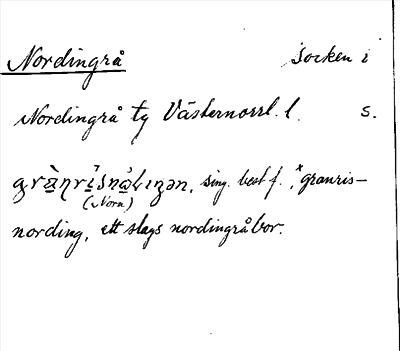 Nordingrå socken i
Nordingrå tg Västernorrl. l. s.
sing. best f., *granris-
(Nora)
nording, ett slags nordingråbor.